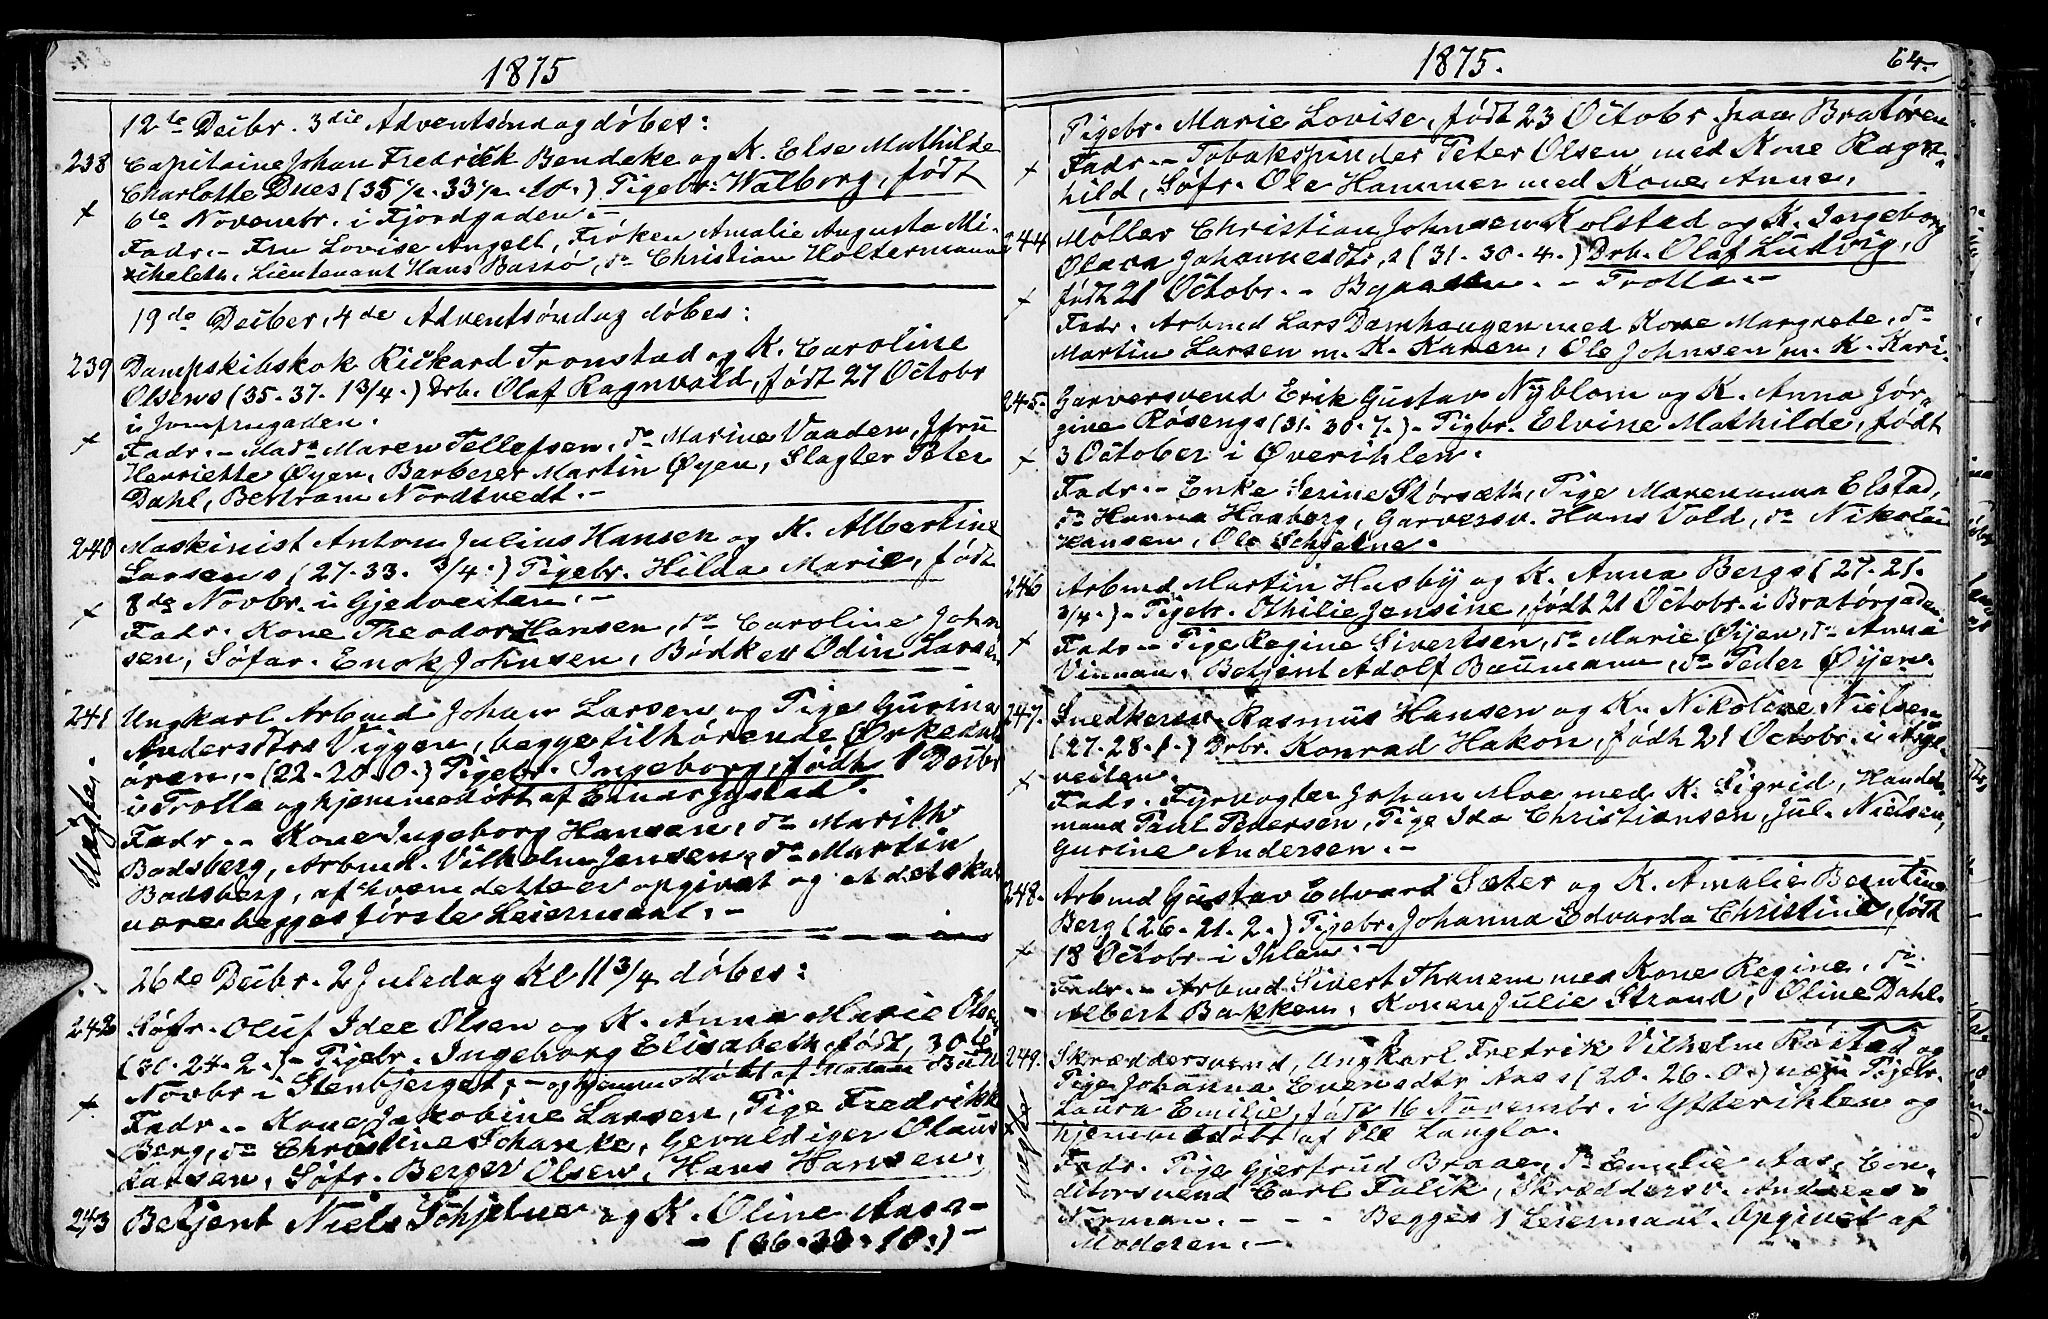 1875
12te Decbr. 3die Adventsöndag döbes:
238 Capitaine Johan Fredrick Bendeke og K. Else Mathilde
Charlotte Dues (35 1/2. 33 1/2. 10.) Pigebr: Walborg, födt
6te Novembr. i Fjordgaden.-
Fadr.- Fru Lovise Angell, Fröken Amalie Augusta Mi-
chelets, Lieutenant Hans Bassö, do Christian Holtermann
19de Decber, 4de Adventsöndag döbes:
239 Dampskibskok Rickard Tronstad og K. Caroline
Olsens (35. 37. 1 3/4.) Drb. Olaf Ragnvald, födt 27 Octobr
i Jomfrugaden.
Fadr.- Mada Maren Tellefsen, do Marine Vaaden, Jfru
Henriette Øyen, Barberer Martin Øyen, Slagter Peter
Dahl, Bertram Nordtvedt.-
240 Maskinist Anton Julius Hansen og K. Albertine
Larsens (27. 33. 3/4.) Pigebr. Hilda Marie, födt
8de Novbr. i Gjedveiten.-
Fadr. Kone Theodor Hansen, do Caroline John
sen, Söfar. Enok Johnsen, Bödker Odin Larsen
241 Ungkarl Arbmd Johan Larsen og Pige Gurina
Andersdtrs Viggen, begge tilhörende Ørkedals
ören,- (22. 20. 0.) Pigebr. Ingeborg, födt 1 Decbr
i Trolla og hjemmedöbt af Einar Ystad.
Uægte.
Fadr.- Kone Ingeborg Hansen, do Marith
Badsberg, Arbmd. Vilhelm Jensen, do Martin
Badsberg, af hvem dette er opgivet og at det skal
være begges förste Leiermaal.-
26de Decbr. 2 Juledag Kl 11 3/4 döbes:
242 Söfr. Oluf Idee Olsen og K. Anna Marie Olsen
(30. 24. 2.)- Pigebr. Ingeborg Elisabeth, födt 30te
Novbr i Stenbjerget,- og hjemmedöbt af Madam
Fadr.- Kone Jakobine Larsen, Pige Fredrikke
Berg, do Christine Schancke, Gevaldiger Olaus
Larsen, Söfr. Berger Olsen, Hans Hansen.
243 Betjent Niels Schjelne og K. Oline Aasa-
- (36. 32. 10.)-
1875.
64.
Pigebr. Marie Lovise, födt 23 Octobr paa Bratören
Fadr.- Tobakspinder Peter Olsen med Kone Ragn-
hild, Söfr. Ole Hammer med Kone Anne,
244 Møller Christian Johnsen Kolstad og K. Ingeborg
Olava Johannesdtr, s (31. 30. 4.) Drb. Olaf Ludvig,
födt 21 Octobr.- Byaasen.- Trolla.-
Fadr. Arbmd Lars Damhaugen med Kone Margrete, do
Martin Larsen m. K. Karen, Ole Johnsen m. K. Kari.
245. Garversvend Erik Gustav Nyblom og K. Anna Jör-
gine Røsengs (31. 30. 7.)- Pigbr. Elvine Mathilde, födt
3 October i Øverihlen.
Fadr.- Enke Serine Størsæth, Pige Maren Anna Elstad,
do Hanna Haaberg, Garversv. Hans Vold, do Nikolai
Hansen, Ole Schjelne.
246 Arbmd Martin Husby og K. Anna Bergs (27. 21.
3/4.)- Pigebr. Othilie Jensine, födt 21 Octobr. i Bratörgaden.
Fadr.- Pige Regine Sivertsen, do Marie Øyen, do Anna
Vinnan, Betjent Adolf Baumann, do Peder Øyen.
247. Snedkersv. Rasmus Hansen og K. Nikoline Nielsen
(27. 28. 1.) Drbr. Konrad Hakon, födt 21 Octobr. i
veiten.
Fadr. Fyrvogter Johan Moe med K. Sigrid, Handels-
mand Paul Pedersen, Pige Ida Christiansen, Jul. Nielsen,
Gurine Andersen.-
248. Arbmd Gustav Edvard Sæter og K. Amalie Berntine
Berg (26. 21. 2.) Pigebr. Johanna Edvarda Christine, födt
18 Octobr i Ihlen.-
Fadr.- Arbmd Sivert Thanem med Kone Regine, do
Albert Bakken, Konen Julie Strand, Oline Dahl.
249. Skræddersvend, Ungkarl Fredrik Vilhelm Röstad og
Pige Johanna Evensdtr Aas s (20. 26. 0.) Pigebr.
Laura Emilie, födt 16 Novembr. i Ytterihlen og
hjemmedöbt af Ole Langlo.
Uægte
Fadr. Pige Gjertrud Braae, do Emilie Aas, Con-
ditorsvend Carl Falck, Skræddersv. Andreas
Norman. - - - Begges 1 Leiermaal. Opgivet af
Moderen.-